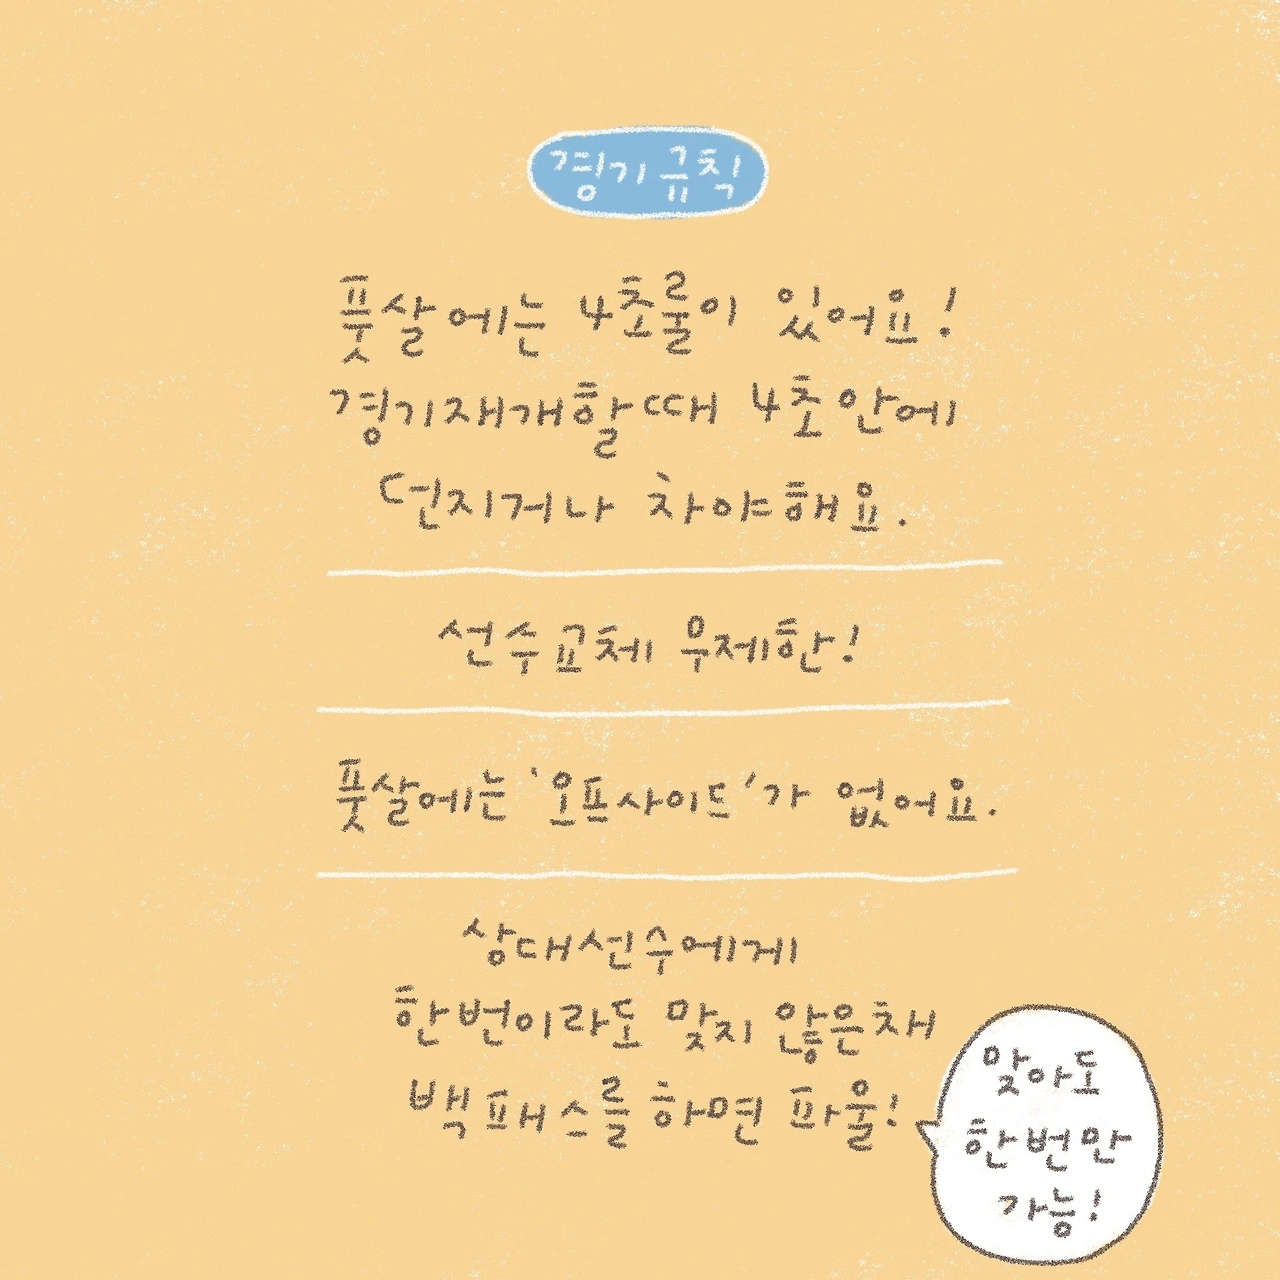 경기 규칙
풋살에는 4초룰이 있어요!
경기재개할때 4초안에
던지거나 차야해요.
선수교체 무제한!
풋살에는 '오프사이드'가 없어요.
상대선수에게
한번이라도 맞지 않은채
백패스를 하면 파울!
맞아도
한번만
가능!